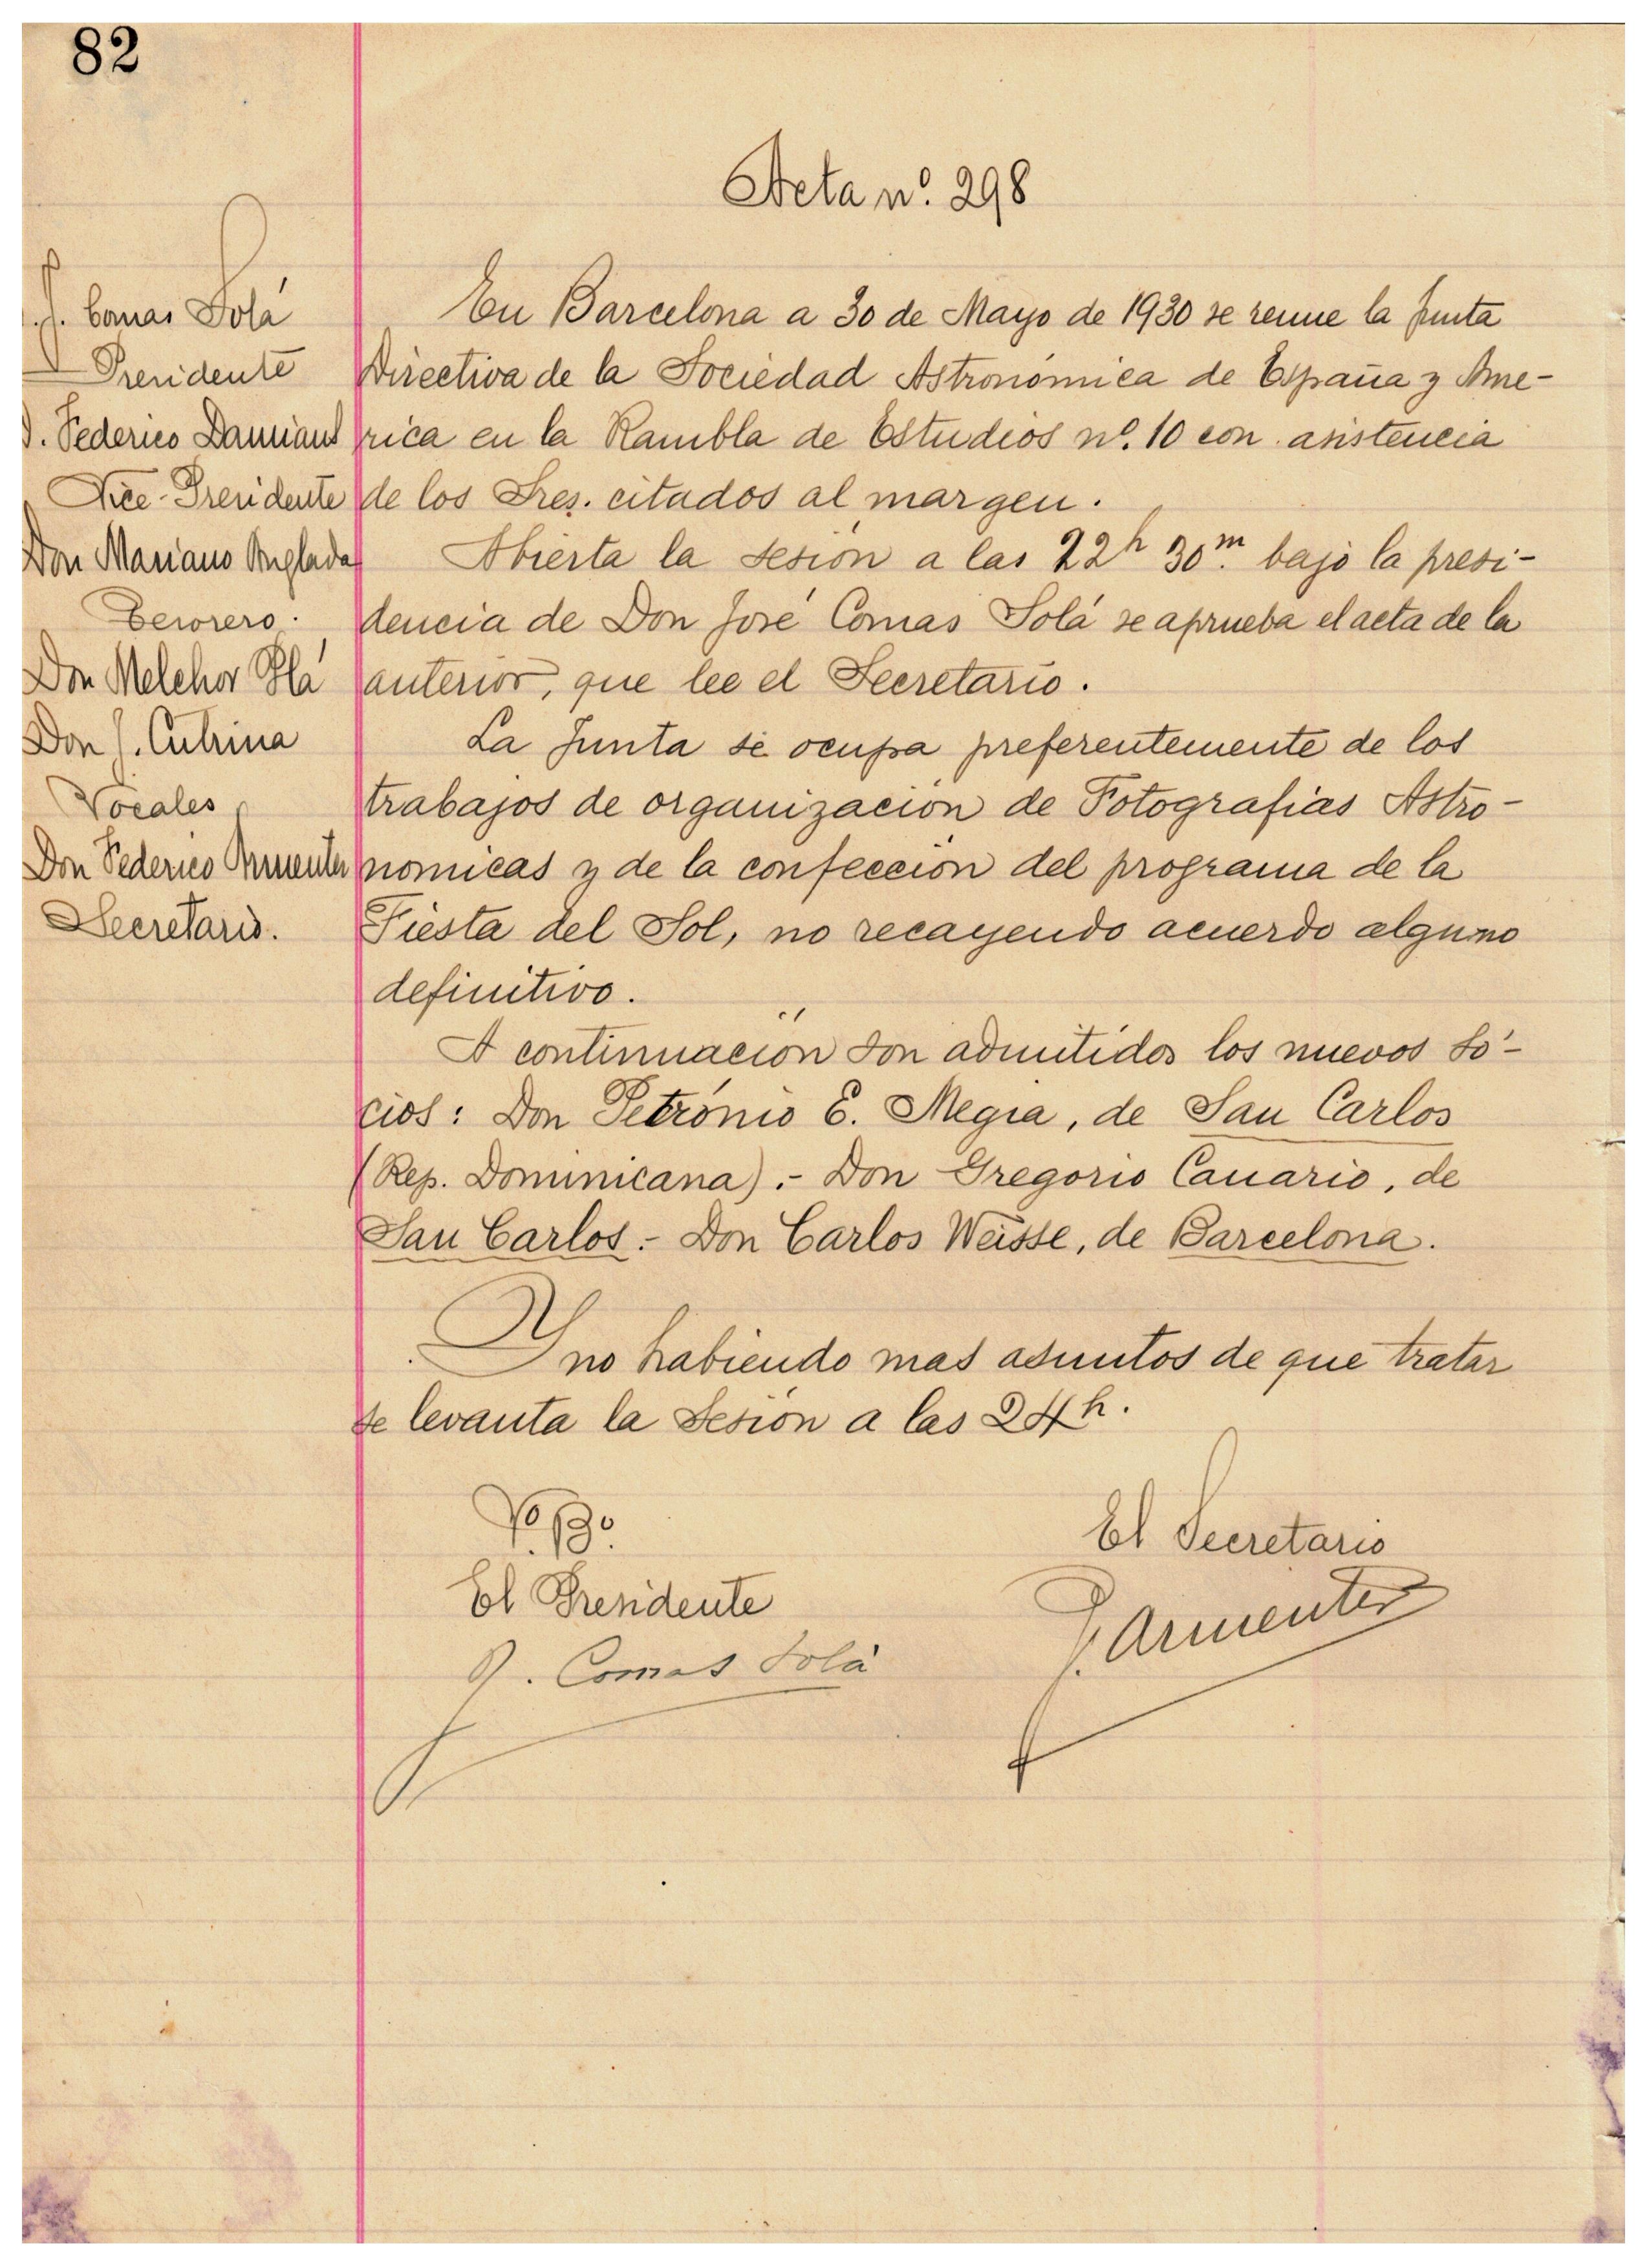 82
Acta nº. 298
J. Comas Solá
Presidente
D. Federico Damians
Vice-Presidente
Don Mariano Anglada
Tesorero.
Don Melchor Plá
Don J. Cubrina
Vocales
Don Federico Armenter
Secretario.
En Barcelona a 30 de Mayo de 1930 se reune la Junta
Directiva de la Sociedad Astronómica de España y Ame-
rica en la Rambla de Estudios nº. 10 con asistencia
de los Sres. citados al margen.
Abierta la sesión a las 22h 30m. bajo la presi-
dencia de Don José Comas Solá se aprueba el acta de la
anterior, que lee el Secretario.
La Junta se ocupa preferentemente de los
trabajos de organización de Fotografias Astro-
nomicas y de la confección del programa de la
Fiesta del Sol, no recayendo acuerdo alguno
definitivo.
A continuación son admitidos los nuevos só-
cios: Don Petrónio E. Megia, de San Carlos
(Rep. Dominicana).- Don Gregorio Canario, de
San Carlos.- Don Carlos Weisse, de Barcelona.
Y no habiendo mas asuntos de que tratar
se levanta la Sesión a las 24h.
Vº. Bº.
El Presidente
J. Comas Solá
El Secretario
F. Armenter